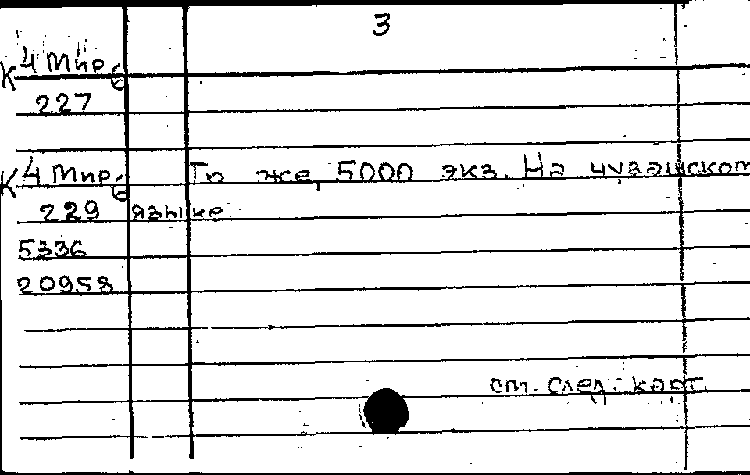 3
К 4 Мир. б
227
К 4 Мир. б То же, 5000 экз. На чувашском
229 языке
5336
20958
см. след. карт.